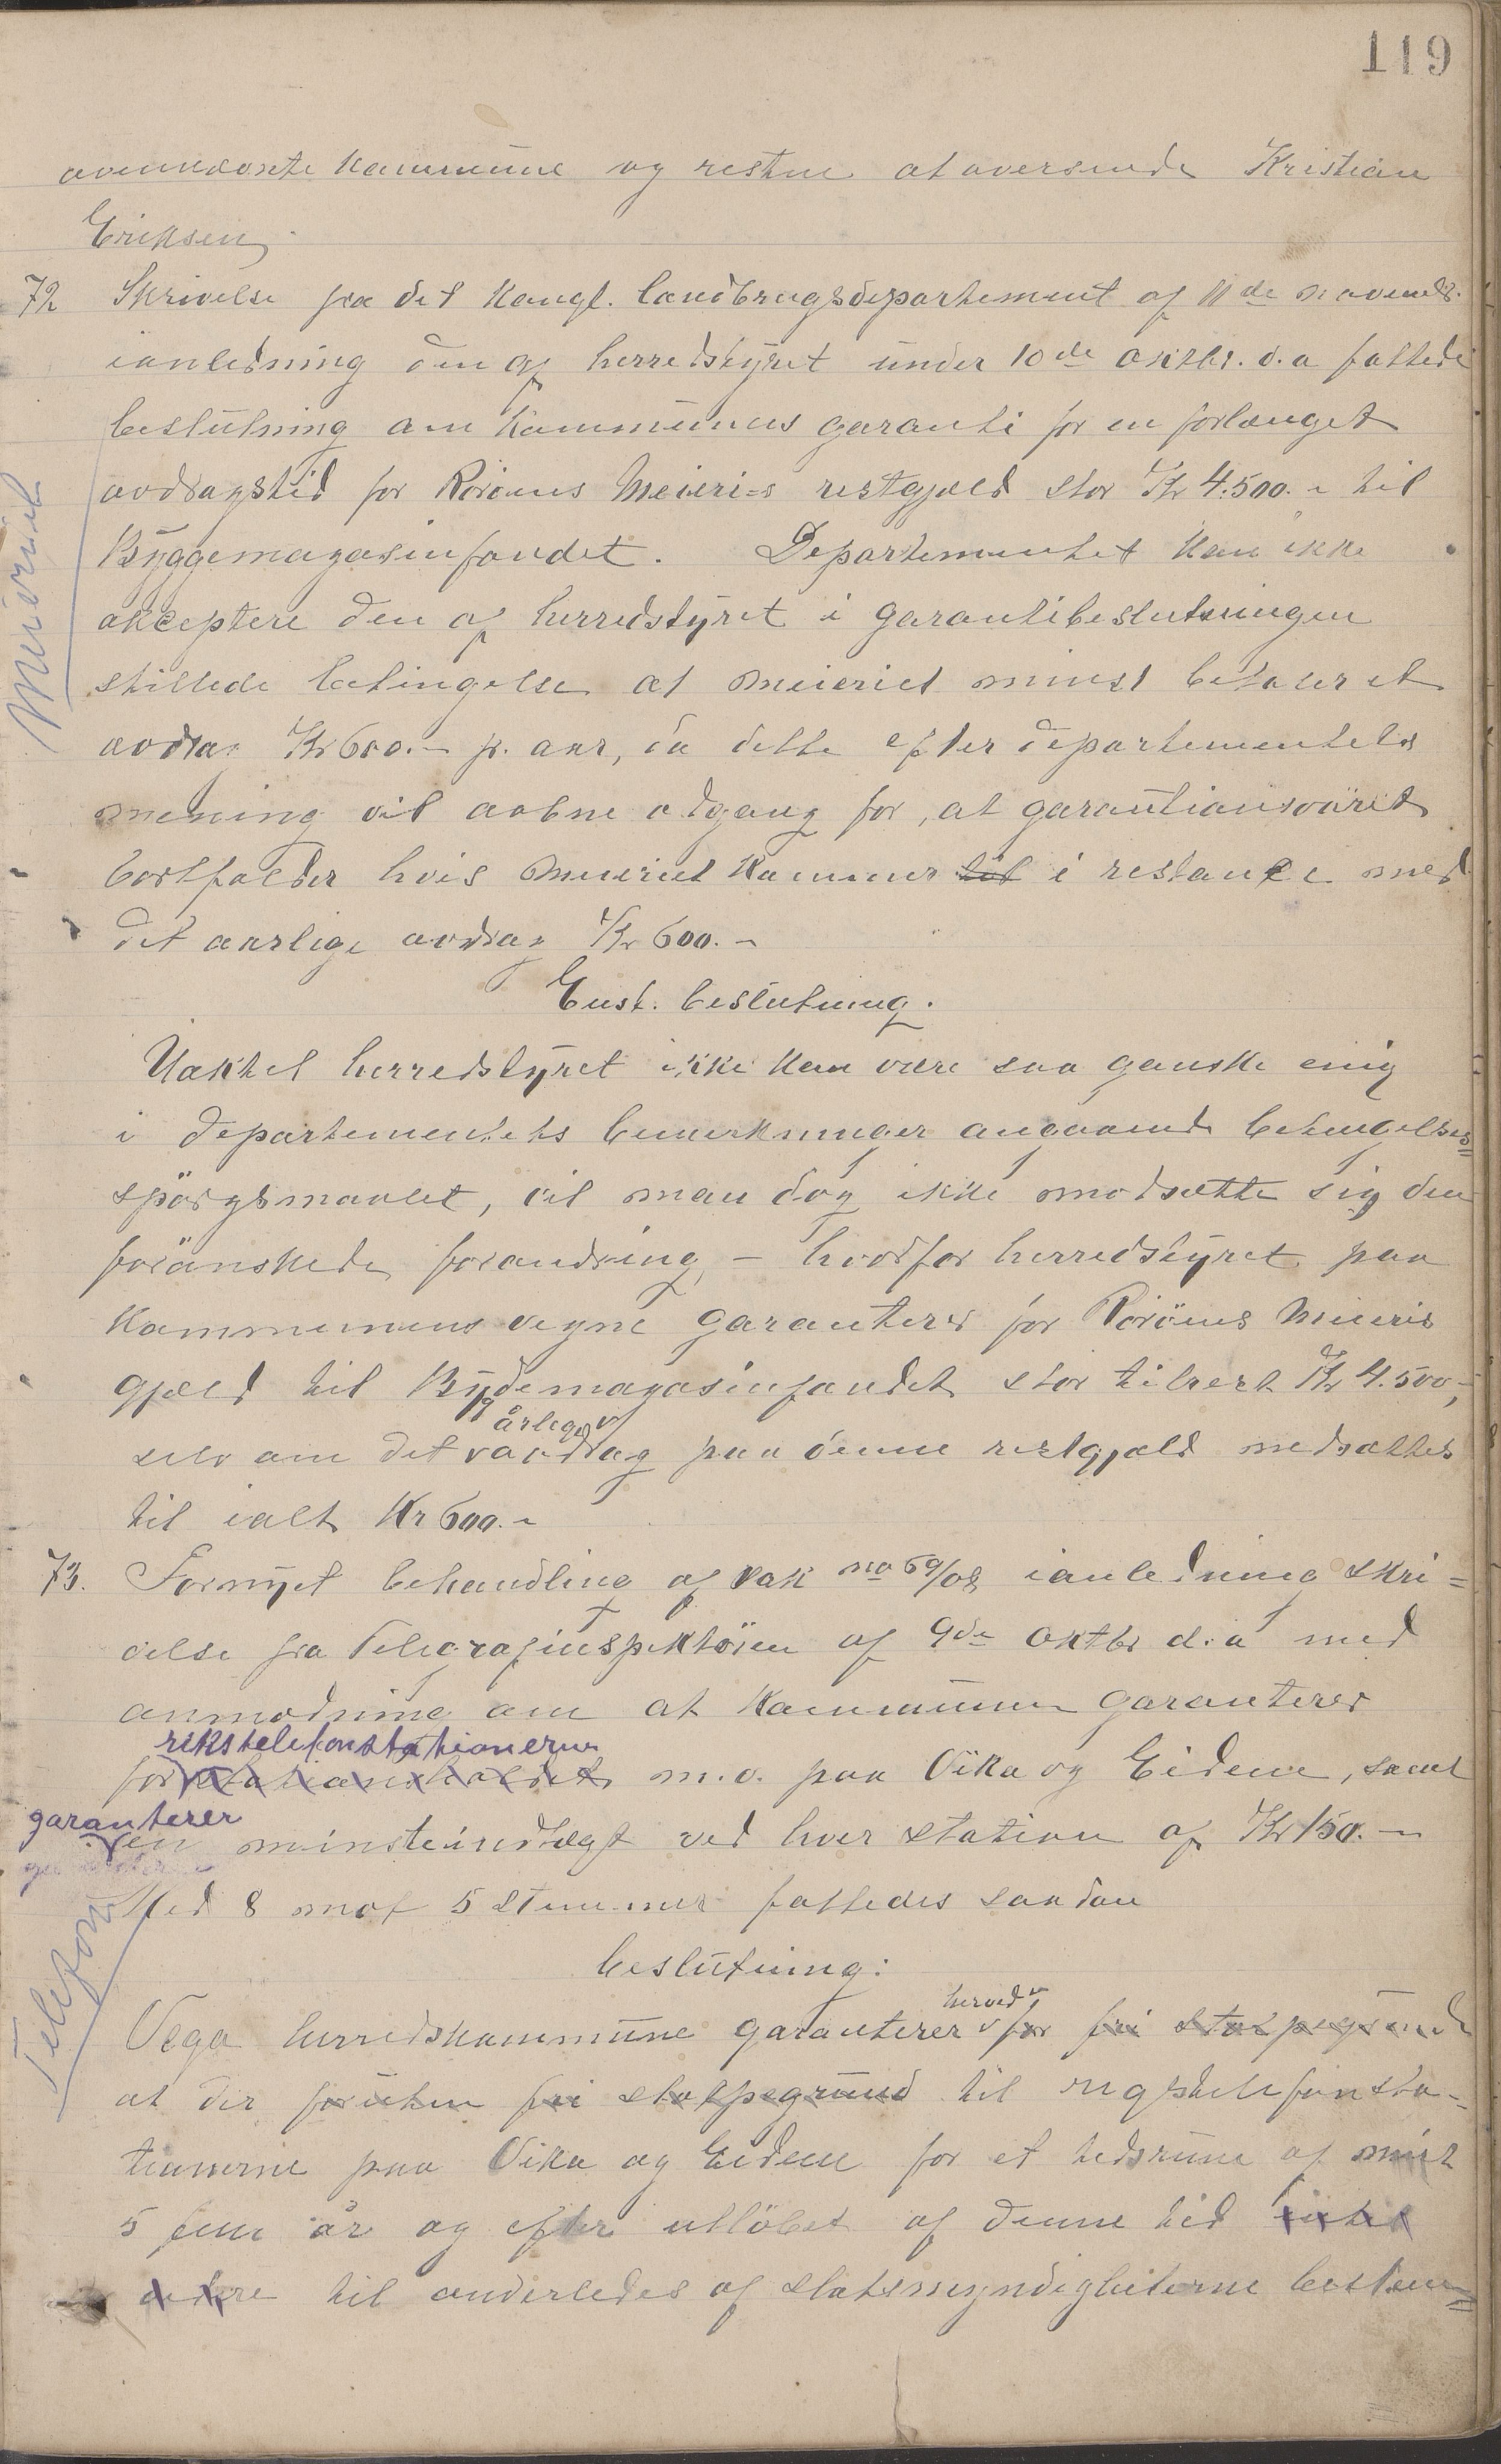 119
kommune og resten at oversende Kristian
Eriksen.
72 Skrivelse fra det kongl. landbrugsdepartement af 11de novembr.
ianledning den af herredstyret under 10de oktbr. d.a fattede
beslutning om kommunens garanti for en forlænget
avdragstid for Rørøens Meieri-s restgjæld stor Kr 4.500.- til
Byggemagasinfondet. Departementet kan ikke
akceptere den af herredstyret i garantibeslutningen
stillede betingelse at meieriet minst betaler et
avdrag Kr 600.- p. aar, da dette efter departementets
mening vil aabne adgang for, at garantiansvaret
bortfalder hvis meieriet kommer til i restance med
det aarlige avdrag Kr 600.-
Enst. beslutning.
Uaktet herredstyret ikke kan være saa ganske enig
i departementets bemerkninger angaaende betingelses=
spörgsmaalet, vil man dog ikke modsætte sig den
forönskede forandring, - hvorfor herredstyret paa
kommunens vegne garanterer for Rörøens Meieris
gjæld til Bygdemagasinfondet stor tilrest Kr 4.500,-
årlige
selv om det avdrag paa denne restgjæld nedsættes
til ialt Kr 600.-
73. Fornyet behandling af sak no 69/08 ianledning skri=
velse fra Telegrafinspektören af 9de oktbr d.a med
anmodning om at kommunen garanterer
rikstelefonstationerne
for stationsholdet m.v. paa Vika og Eidem, samt
garanterer
en minsteindtægt ved hver station af Kr 150.-
Med 8 mot 5 stemmer fattedes saadan
beslutning:
herved
Vega herredskommune garanterer for fri stolpegrund
at der foruten fri stolpegrund til rigstelefonsta-
tionerne paa Vika og Eidem for et tidsrum af minst
5 fem år og efter utlöbet af denne tid intet
videre til anderledes af statsmyndigheterne bestem=
Meieriet
Telefon